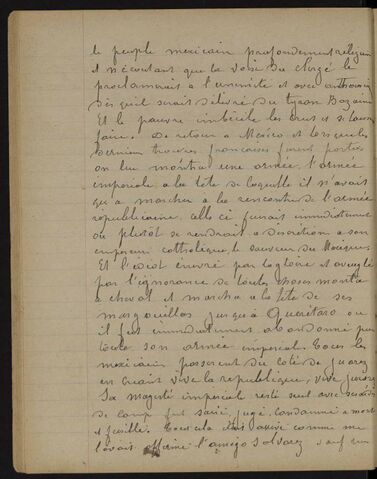 le peuple mexicain profondement religieux
et n'écoutant que la voix du clergé le
proclamerait a l'unimité et avec enthousias
dès qu'il serait délivré du tyran Bazaine
Et le pauvre imbécile les crut et se laissa
faire. De retour a Mexico et lorsque les
dernieres troupes francaises furent parties
on lui montra une armée l'armée
imperiale a la tête de laquelle il n'avait
qu'a marcher a la rencontre de l'armée
républicaine. celle ci fuirait immediatement
ou plutôt se rendrait a discretion a son
empereur catholique le sauveur du Mexique
Et l'idiot enivré par la gloire et aveuglé
par l'ignorance de toutes choses monta
a cheval et marcha a la tête de ses
margouillos jusqu'à Quérétaro ou
il fut immediatement abandonné par
toute son armée imperiale. Tous les
mexicains passerent du coté de Juarez
en criant vive la republique, vive Juarez
Sa majesté imperiale resté seul avec
de camp fut saisi, jugé, condamné a mort
et fusillé. Tout cela était arrivé comme me
l'avait affirmé l'amigo Salvarez sauf